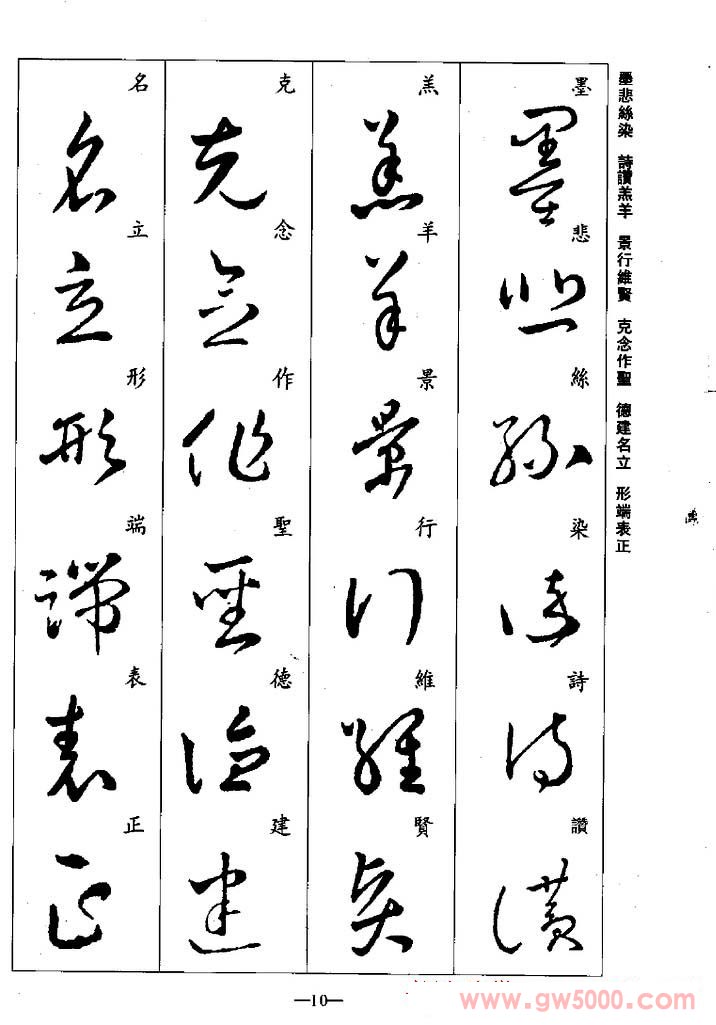 墨悲絲染　詩讚羔羊　景行維賢　克念作聖　德建名立　形端表正
墨悲絲染詩讚
羔羊景行維賢
克念作聖德建
名立形端表正
—10—
www.gw5000.com